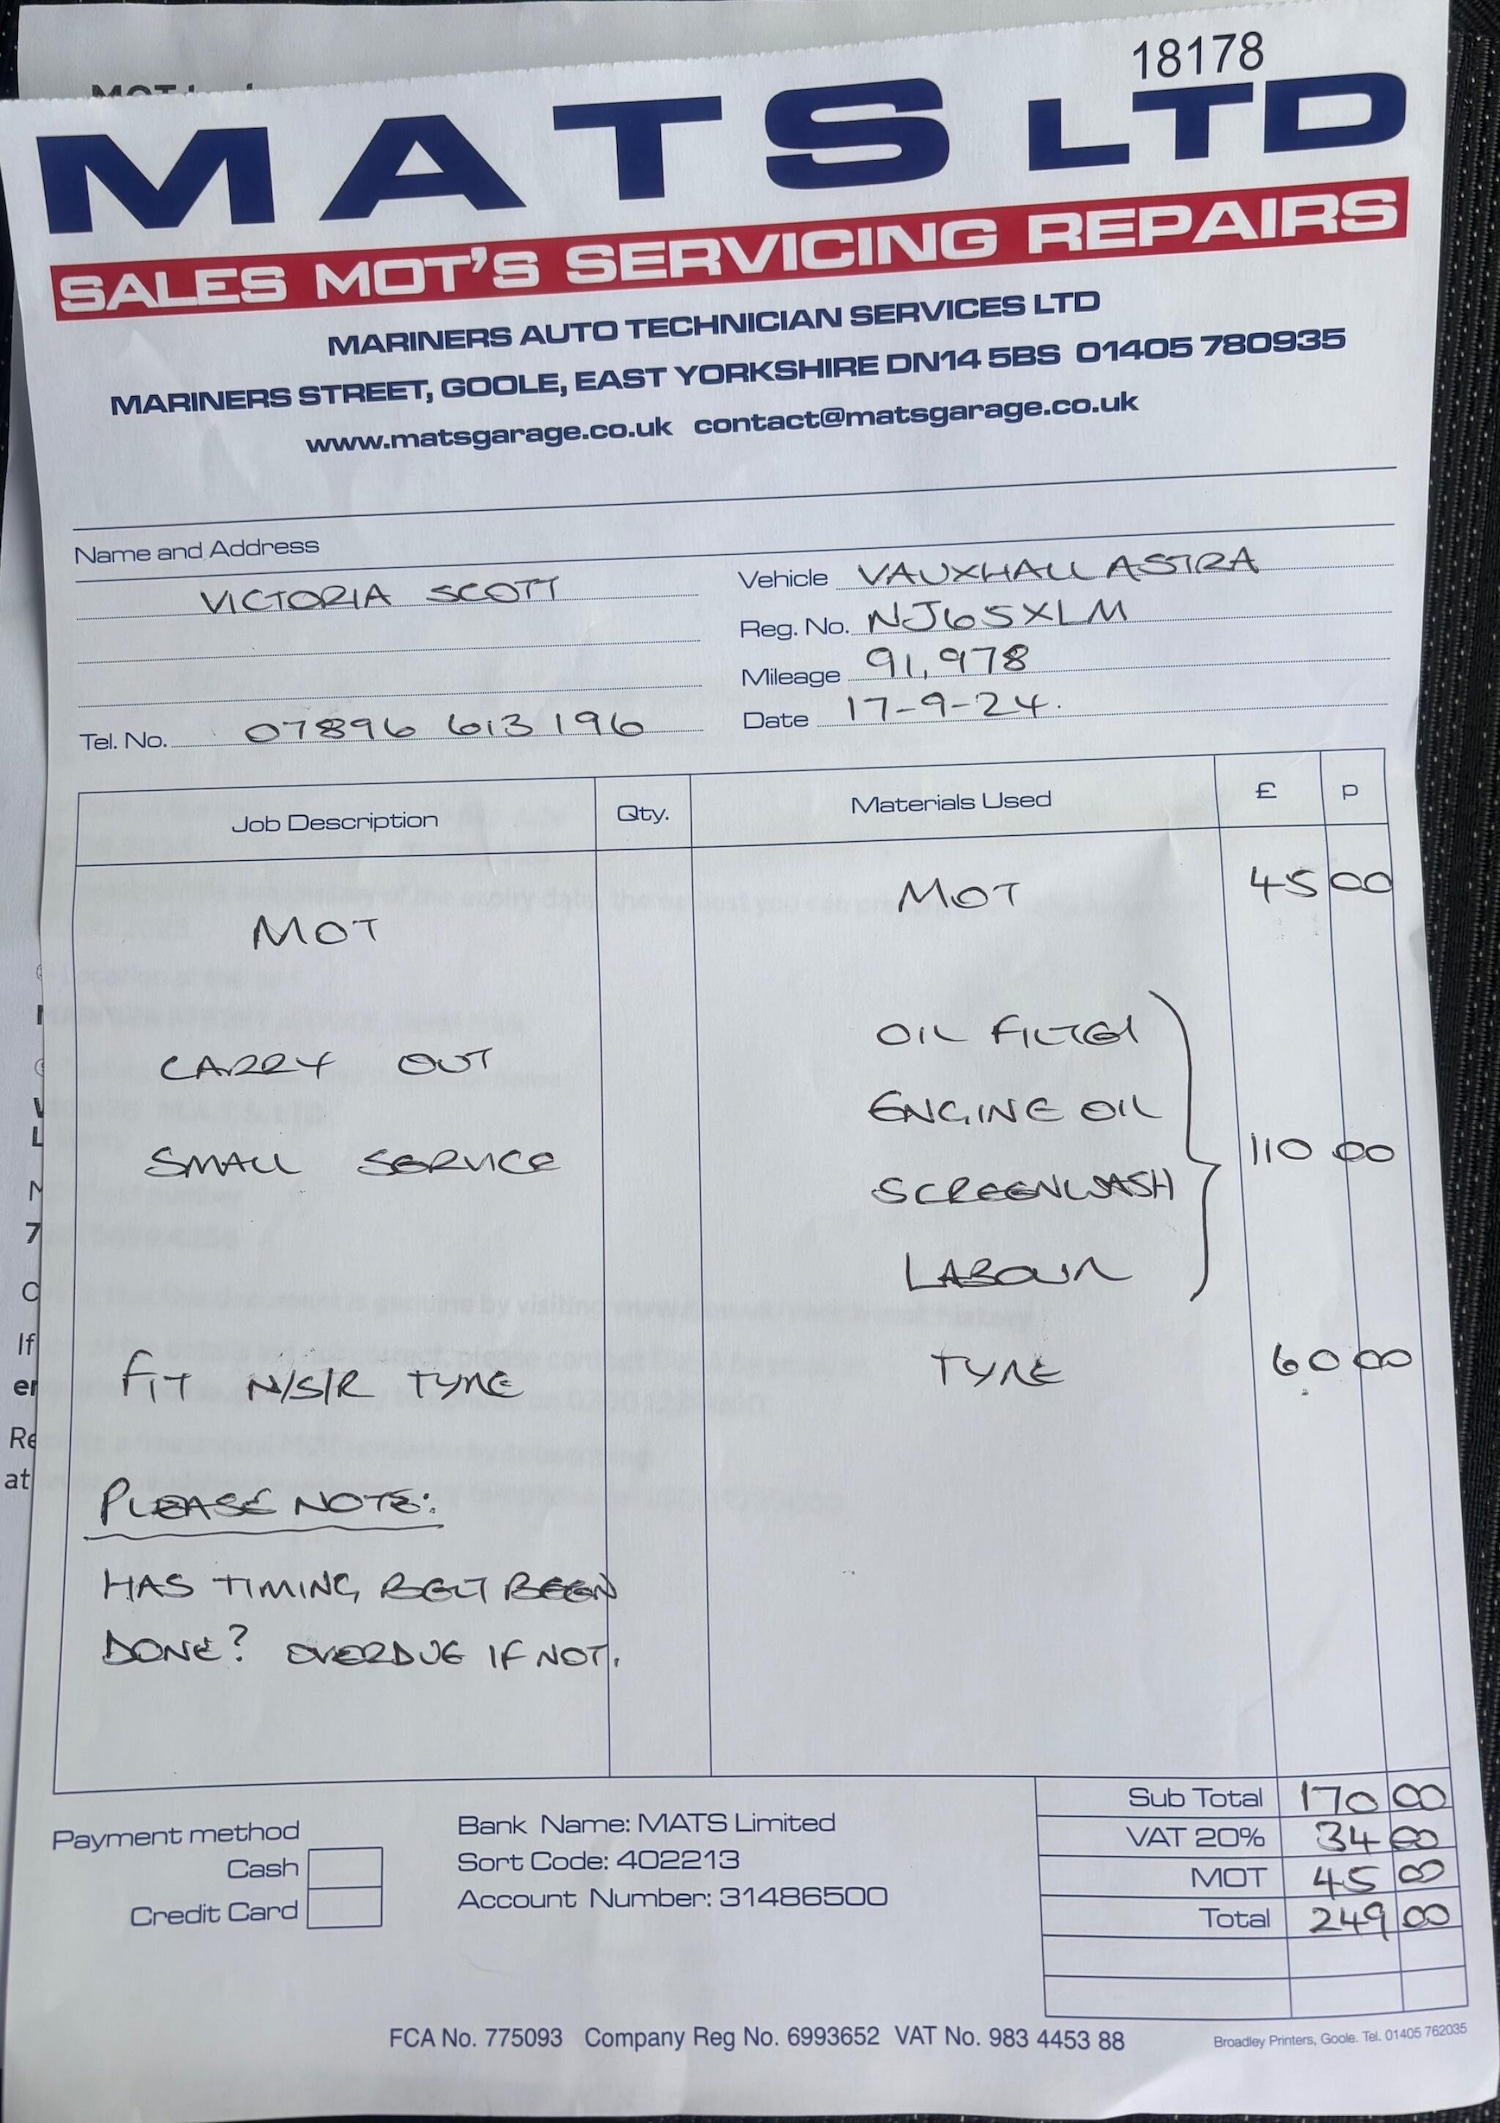 18178
MATS LTD
SALES MOT'S SERVICING REPAIRS
MARINERS AUTO TECHNICIAN SERVICES LTD
MARINERS STREET, GOOLE, EAST YORKSHIRE DN14 5BS 01405 780935
www.matsgarage.co.uk contact@matsgarage.co.uk
Name and Address
VICTORIA SCOTT
Tel. No. 07896 613 196
Vehicle VAUXHALL ASTRA
Reg. No. NJ65XLM
Mileage 91,978
Date 17-9-24.
Job Description Qty. Materials Used £ P
MOT MOT 45 00
CARRY OUT
SMALL SERVICE
OIL FILTER
ENGINE OIL
SCREENWASH
LABOUR
110 00
FIT N/S/R TYRE TYRE 60 00
PLEASE NOTE:
HAS TIMING BELT BEEN
DONE? OVERDUE IF NOT.
Payment method
Cash
Credit Card
Bank Name: MATS Limited
Sort Code: 402213
Account Number: 31486500
Sub Total 170 00
VAT 20% 34 00
MOT 45 00
Total 249 00
FCA No. 775093 Company Reg No. 6993652 VAT No. 983 4453 88
Broadley Printers, Goole. Tel. 01405 762035